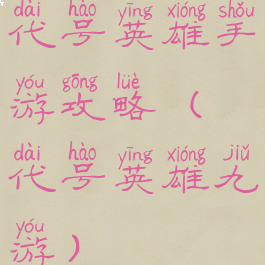 dài hào yīng xióng shǒu
代号英雄手
yóu gōng lüè
游攻略（
dài hào yīng xióng jiǔ
代号英雄九
yóu
游）